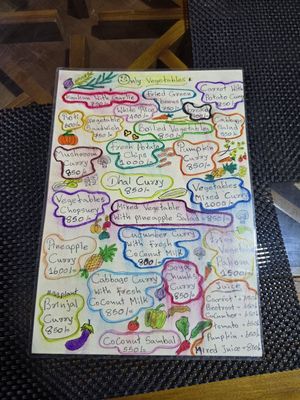 Only Vegetables
Fried Green
beans
850/-
Carrot With
Potato Curry
White Rice
400/-
Roti
Vegetable
Sandwich
Cabbage
Salad
Boiled Vegetables
850/-
Mushroom
Curry
850/-
Fresh Potato
Chips
1000/-
Pumpkin
Curry
850/-
Dhal Curry
850/-
Vegetables
Chopsuey
850/-
Vegetables
Mixed Curry
1000/-
Mixed Vegetable
With pineapple Salad - 850/-
Cucumber Curry
With Fresh
Coconut Milk
850/-
Pineapple
Curry
1600/-
1500/-
Soya
Chunks
Curry
850/-
Cabbage Curry
With Fresh
Coconut Milk
850/-
Eggplant
Brinjal
Curry
850/-
Juice
Carrot
Beetroot
Cucumber
Tomato
Pumpkin
Mixed Juice
Coconut Sambal
550/-